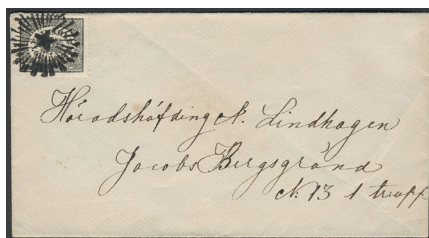 Häradshöfding A. Lindhagen
Jacobs Bergsgränd
N: 13 1 trapp